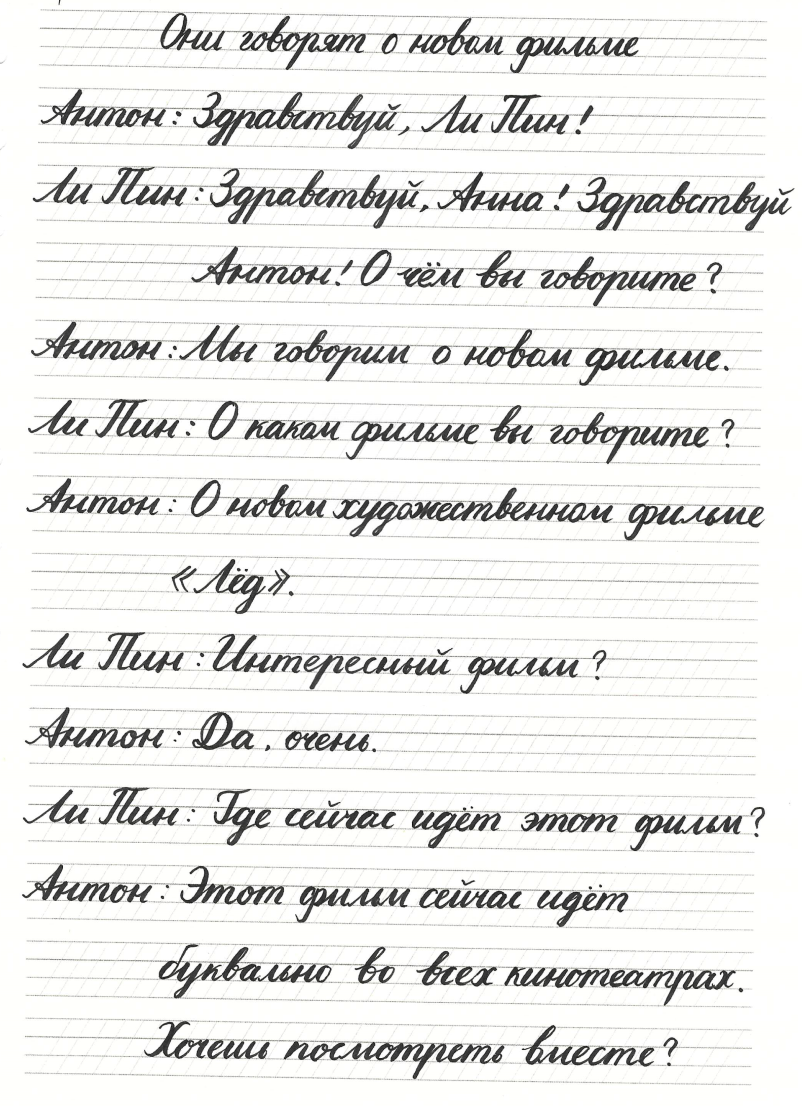 Они говорят о новом фильме
Антон: Здравствуй, Ли Пин!
Ли Пин: Здравствуй, Анна! Здравствуй
Антон! О чём вы говорите?
Антон: Мы говорим о новом фильме.
Ли Пин: О каком фильме вы говорите?
Антон: О новом художественном фильме
«Лёд».
Ли Пин: Интересный фильм?
Антон: Да, очень.
Ли Пин: Где сейчас идёт этот фильм?
Антон: Этот фильм сейчас идёт
буквально во всех кинотеатрах.
Хочешь посмотреть вместе?